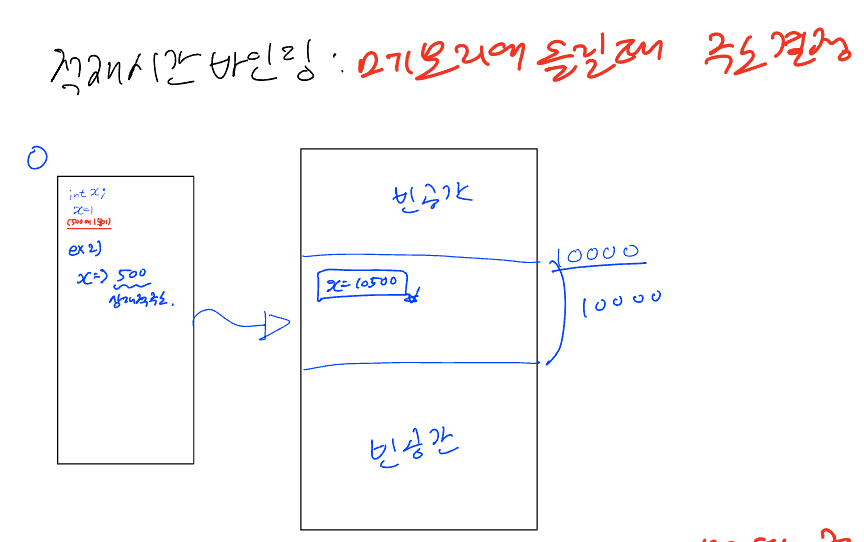 적재시간 바인딩 : 메모리에 올릴때 주소결정
0
int x;
x=1
(500에 1넣어)
ex 2)
x => 500
상대적주소.
빈공간
x=10500
10000
10000
빈공간